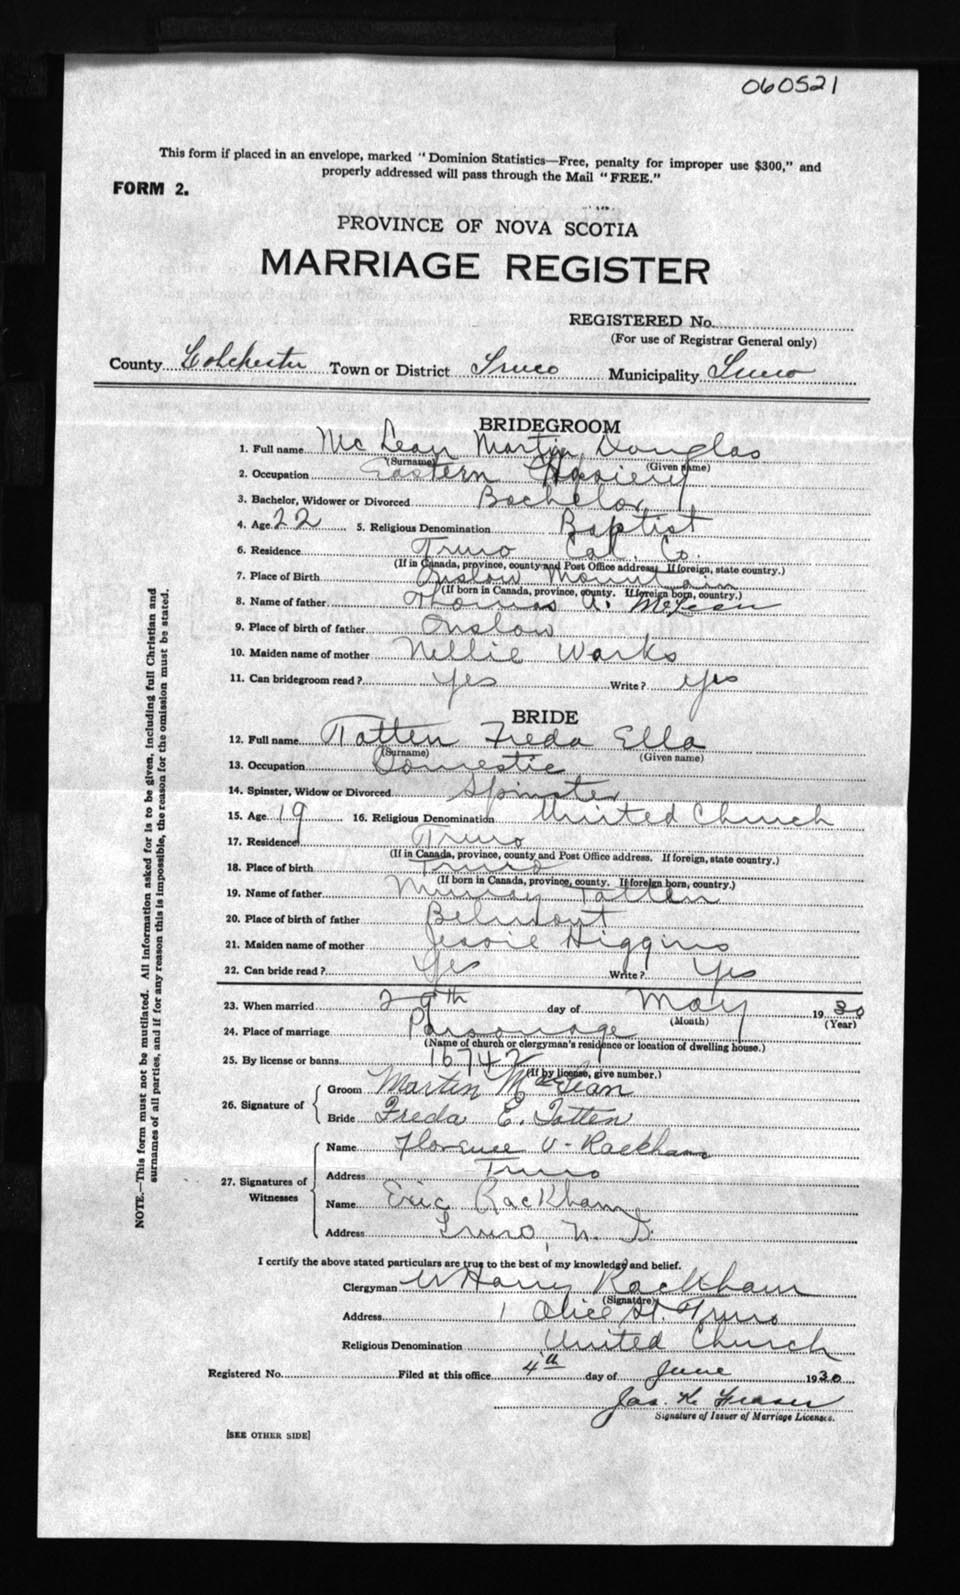 060521
This form if placed in an envelope, marked "Dominion Statistics—Free, penalty for improper use $300," and
properly addressed will pass through the Mail "FREE."
FORM 2.
PROVINCE OF NOVA SCOTIA
MARRIAGE REGISTER
REGISTERED No.
(For use of Registrar General only)
County Colchester Town or District Truro Municipality Truro
BRIDEGROOM
1. Full name McLean Martin Douglas
(Surname) (Given name)
2. Occupation Eastern Hosiery
3. Bachelor, Widower or Divorced Bachelor
4. Age 22 5. Religious Denomination Baptist
6. Residence Truro Col. Co.
(If in Canada, province, county and Post Office address. If foreign, state country.)
7. Place of Birth Onslow Mountain
(If born in Canada, province, county. If foreign born, country.)
8. Name of father Thomas A. McLean
9. Place of birth of father Onslow
10. Maiden name of mother Nellie Warks
11. Can bridegroom read? Yes Write? yes
BRIDE
12. Full name Tatten Freda Ella
(Surname) (Given name)
13. Occupation Domestic
14. Spinster, Widow or Divorced Spinster
15. Age 19 16. Religious Denomination United Church
17. Residence Truro
(If in Canada, province, county and Post Office address. If foreign, state country.)
18. Place of birth Truro
(If born in Canada, province, county. If foreign born, country.)
19. Name of father Murray Tatten
20. Place of birth of father Belmont
21. Maiden name of mother Jessie Higgins
22. Can bride read? Yes Write? Yes
23. When married 29th day of May 1930
(Month) (Year)
24. Place of marriage Parsonage
(Name of church or clergyman's residence or location of dwelling house.)
25. By license or banns 16742
(If by license, give number.)
26. Signature of
Groom Martin MacLean
Bride Freda E. Totten
27. Signatures of Witnesses
Name Florence V. Rackham
Address Truro
Name Eric Rackham
Address Truro, N. S.
I certify the above stated particulars are true to the best of my knowledge and belief.
Clergyman W Harry Rackham
(Signature)
Address 1 Alice St. Truro
Religious Denomination United Church
Registered No. Filed at this office 4th day of June 1930
Jas. K. Fraser
Signature of Issuer of Marriage Licenses.
[SEE OTHER SIDE]
NOTE.—This form must not be mutilated. All information asked for is to be given, including full Christian and
surnames of all parties, and if for any reason this is impossible, the reason for the omission must be stated.